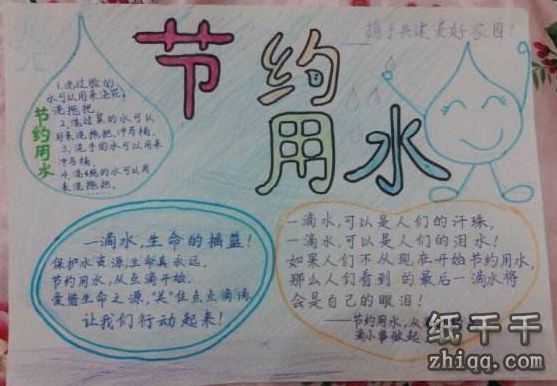 节约用水
携手共建美好家园!
节约用水
1.洗过脸的
水可以用来浇花,
洗拖把。
2.洗过菜的水可以
用来洗拖把,冲马桶。
3.洗手的水可以用来
冲马桶。
4.洗碗的水可以用
来洗拖把。
一滴水,生命的摇篮!
保护水资源,生命真永远。
节约用水,从点滴开始。
爱惜生命之源,"关"住点点滴滴,
让我们行动起来!
一滴水,可以是人们的汗珠,
一滴水,可以是人们的泪水!
如果人们不从现在开始节约用水,
那么人们看到的最后一滴水将
会是自己的眼泪!
——节约用水,从
滴小事做起
纸千千
zhiqq.com